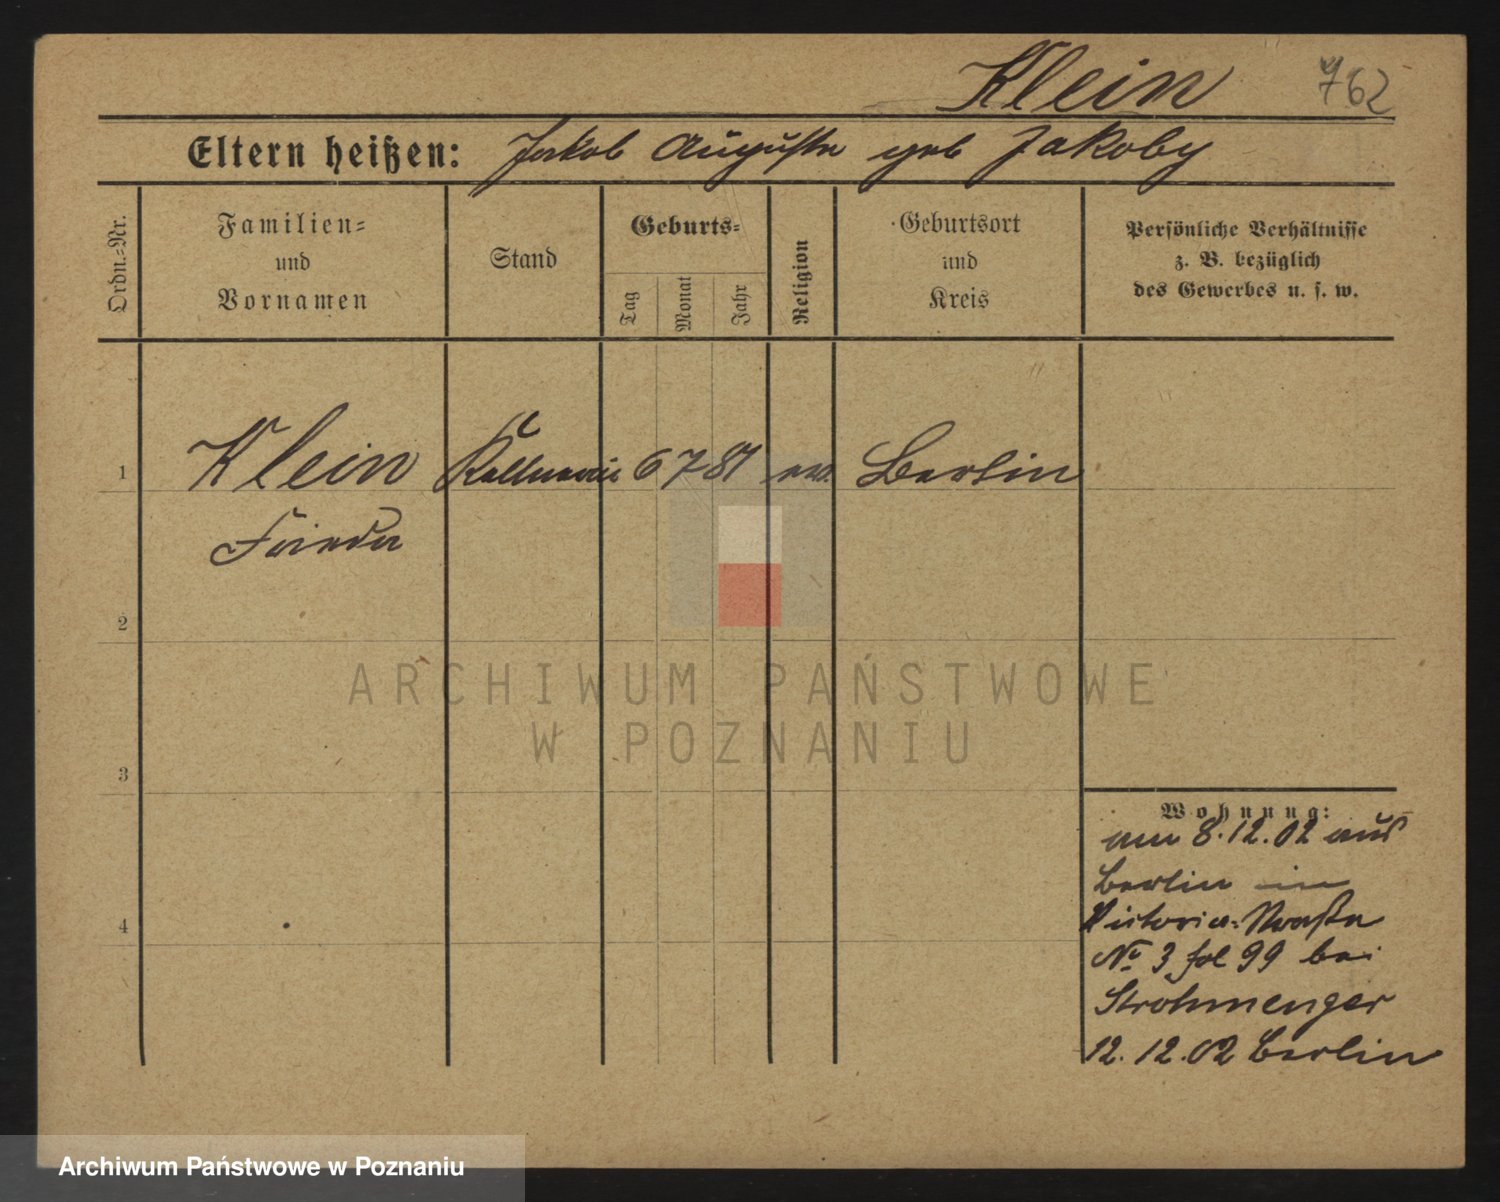 Klein 762
Eltern heißen: Jakob Auguste geb Jakoby
Ordn.=Nr.
Familien=
und
Vornamen
Stand
Geburts=
Tag
Monat
Jahr
Religion
Geburtsort
und
Kreis
Persönliche Verhältnisse
z. B. bezüglich
des Gewerbes u. s. w.
1 Klein Kellnerin 6 7 81 ev. Berlin
Frieda
2
ARCHIWUM PAŃSTWOWE
W POZNANIU
3
Wohnung:
am 8.12.02 aus
Berlin in
4 Victoria=Straße
No 3 fol 99 bei
Strohmenger
12.12.02 Berlin
Archiwum Państwowe w Poznaniu